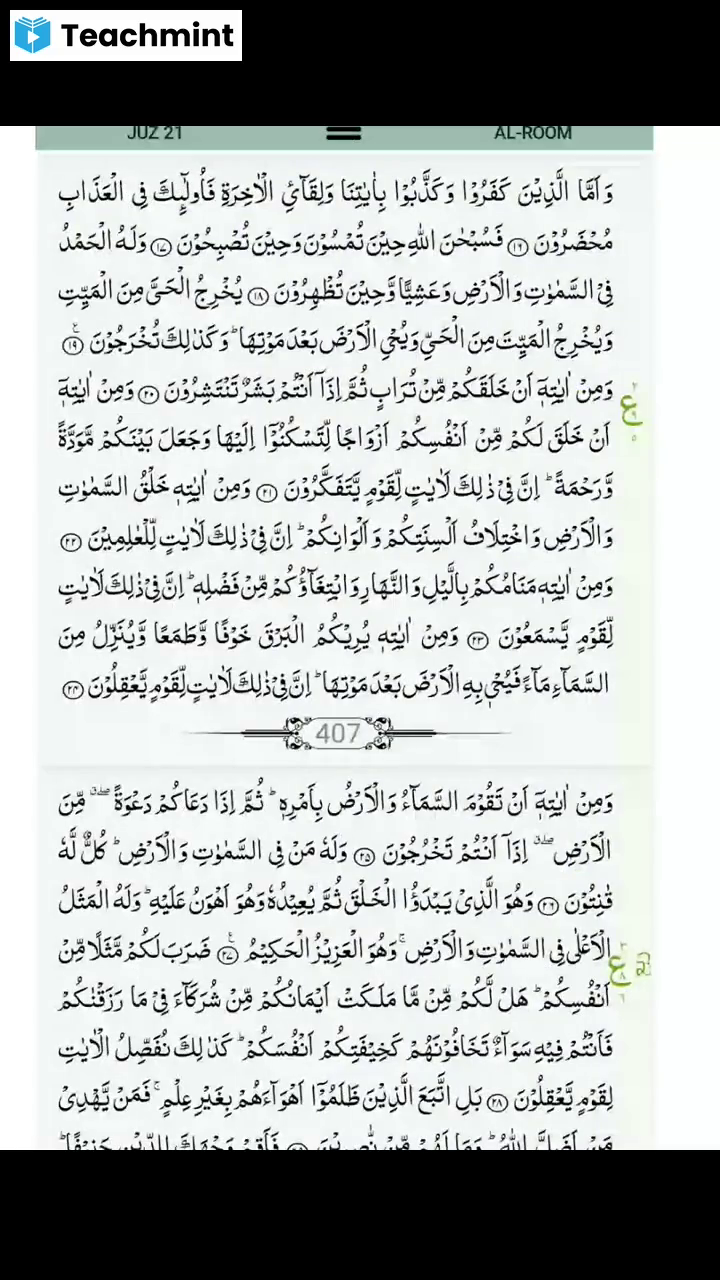 Teachmint
JUZ 21
AL-ROOM
وَاَمَّا الَّذِيْنَ كَفَرُوْا وَكَذَّبُوْا بِاٰيٰتِنَا وَلِقَآئِ الْاٰخِرَةِ فَاُولٰٓئِكَ فِى الْعَذَابِ
مُحْضَرُوْنَ ۝۱۶ فَسُبْحٰنَ اللّٰهِ حِيْنَ تُمْسُوْنَ وَحِيْنَ تُصْبِحُوْنَ ۝۱۷ وَلَهُ الْحَمْدُ
فِى السَّمٰوٰتِ وَالْاَرْضِ وَعَشِيًّا وَّحِيْنَ تُظْهِرُوْنَ ۝۱۸ يُخْرِجُ الْحَىَّ مِنَ الْمَيِّتِ
وَيُخْرِجُ الْمَيِّتَ مِنَ الْحَىِّ وَيُحْىِ الْاَرْضَ بَعْدَ مَوْتِهَا ؕ وَكَذٰلِكَ تُخْرَجُوْنَ ۝۱۹ ع
وَمِنْ اٰيٰتِهٖۤ اَنْ خَلَقَكُمْ مِّنْ تُرَابٍ ثُمَّ اِذَاۤ اَنْتُمْ بَشَرٌ تَنْتَشِرُوْنَ ۝۲۰ وَمِنْ اٰيٰتِهٖۤ
اَنْ خَلَقَ لَكُمْ مِّنْ اَنْفُسِكُمْ اَزْوَاجًا لِّتَسْكُنُوْۤا اِلَيْهَا وَجَعَلَ بَيْنَكُمْ مَّوَدَّةً
وَّرَحْمَةً ؕ اِنَّ فِىْ ذٰلِكَ لَاٰيٰتٍ لِّقَوْمٍ يَّتَفَكَّرُوْنَ ۝۲۱ وَمِنْ اٰيٰتِهٖ خَلْقُ السَّمٰوٰتِ
وَالْاَرْضِ وَاخْتِلَافُ اَلْسِنَتِكُمْ وَاَلْوَانِكُمْ ؕ اِنَّ فِىْ ذٰلِكَ لَاٰيٰتٍ لِّلْعٰلِمِيْنَ ۝۲۲
وَمِنْ اٰيٰتِهٖ مَنَامُكُمْ بِالَّيْلِ وَالنَّهَارِ وَابْتِغَآؤُكُمْ مِّنْ فَضْلِهٖ ؕ اِنَّ فِىْ ذٰلِكَ لَاٰيٰتٍ
لِّقَوْمٍ يَّسْمَعُوْنَ ۝۲۳ وَمِنْ اٰيٰتِهٖ يُرِيْكُمُ الْبَرْقَ خَوْفًا وَّطَمَعًا وَّيُنَزِّلُ مِنَ
السَّمَآءِ مَآءً فَيُحْىٖ بِهِ الْاَرْضَ بَعْدَ مَوْتِهَا ؕ اِنَّ فِىْ ذٰلِكَ لَاٰيٰتٍ لِّقَوْمٍ يَّعْقِلُوْنَ ۝۲۴
407
وَمِنْ اٰيٰتِهٖۤ اَنْ تَقُوْمَ السَّمَآءُ وَالْاَرْضُ بِاَمْرِهٖ ؕ ثُمَّ اِذَا دَعَاكُمْ دَعْوَةً ۖ مِّنَ
الْاَرْضِ ۖ اِذَاۤ اَنْتُمْ تَخْرُجُوْنَ ۝۲۵ وَلَهٗ مَنْ فِى السَّمٰوٰتِ وَالْاَرْضِ ؕ كُلٌّ لَّهٗ
قٰنِتُوْنَ ۝۲۶ وَهُوَ الَّذِىْ يَبْدَؤُا الْخَلْقَ ثُمَّ يُعِيْدُهٗ وَهُوَ اَهْوَنُ عَلَيْهِ ؕ وَلَهُ الْمَثَلُ
الْاَعْلٰى فِى السَّمٰوٰتِ وَالْاَرْضِ ۚ وَهُوَ الْعَزِيْزُ الْحَكِيْمُ ۝۲۷ ضَرَبَ لَكُمْ مَّثَلًا مِّنْ ع
اَنْفُسِكُمْ ؕ هَلْ لَّكُمْ مِّنْ مَّا مَلَكَتْ اَيْمَانُكُمْ مِّنْ شُرَكَآءَ فِىْ مَا رَزَقْنٰكُمْ
فَاَنْتُمْ فِيْهِ سَوَآءٌ تَخَافُوْنَهُمْ كَخِيْفَتِكُمْ اَنْفُسَكُمْ ؕ كَذٰلِكَ نُفَصِّلُ الْاٰيٰتِ
لِقَوْمٍ يَّعْقِلُوْنَ ۝۲۸ بَلِ اتَّبَعَ الَّذِيْنَ ظَلَمُوْۤا اَهْوَآءَهُمْ بِغَيْرِ عِلْمٍ ۚ فَمَنْ يَّهْدِىْ
مَنْ اَضَلَّ اللّٰهُ ؕ وَمَا لَهُمْ مِّنْ نّٰصِرِيْنَ ۝۲۹ فَاَقِمْ وَجْهَكَ لِلدِّيْنِ حَنِيْفًا ؕ